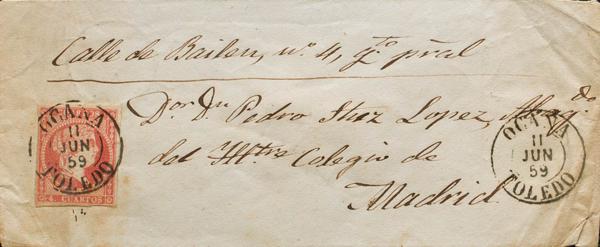 Calle de Bailen, nº 4, qto pral
Dor Dn Pedro Lopez, Abogdo
del Iltre Colegio de
Madrid
OCAÑA
11
JUN
59
TOLEDO
4 CUARTOS
OCAÑA
11
JUN
59
TOLEDO